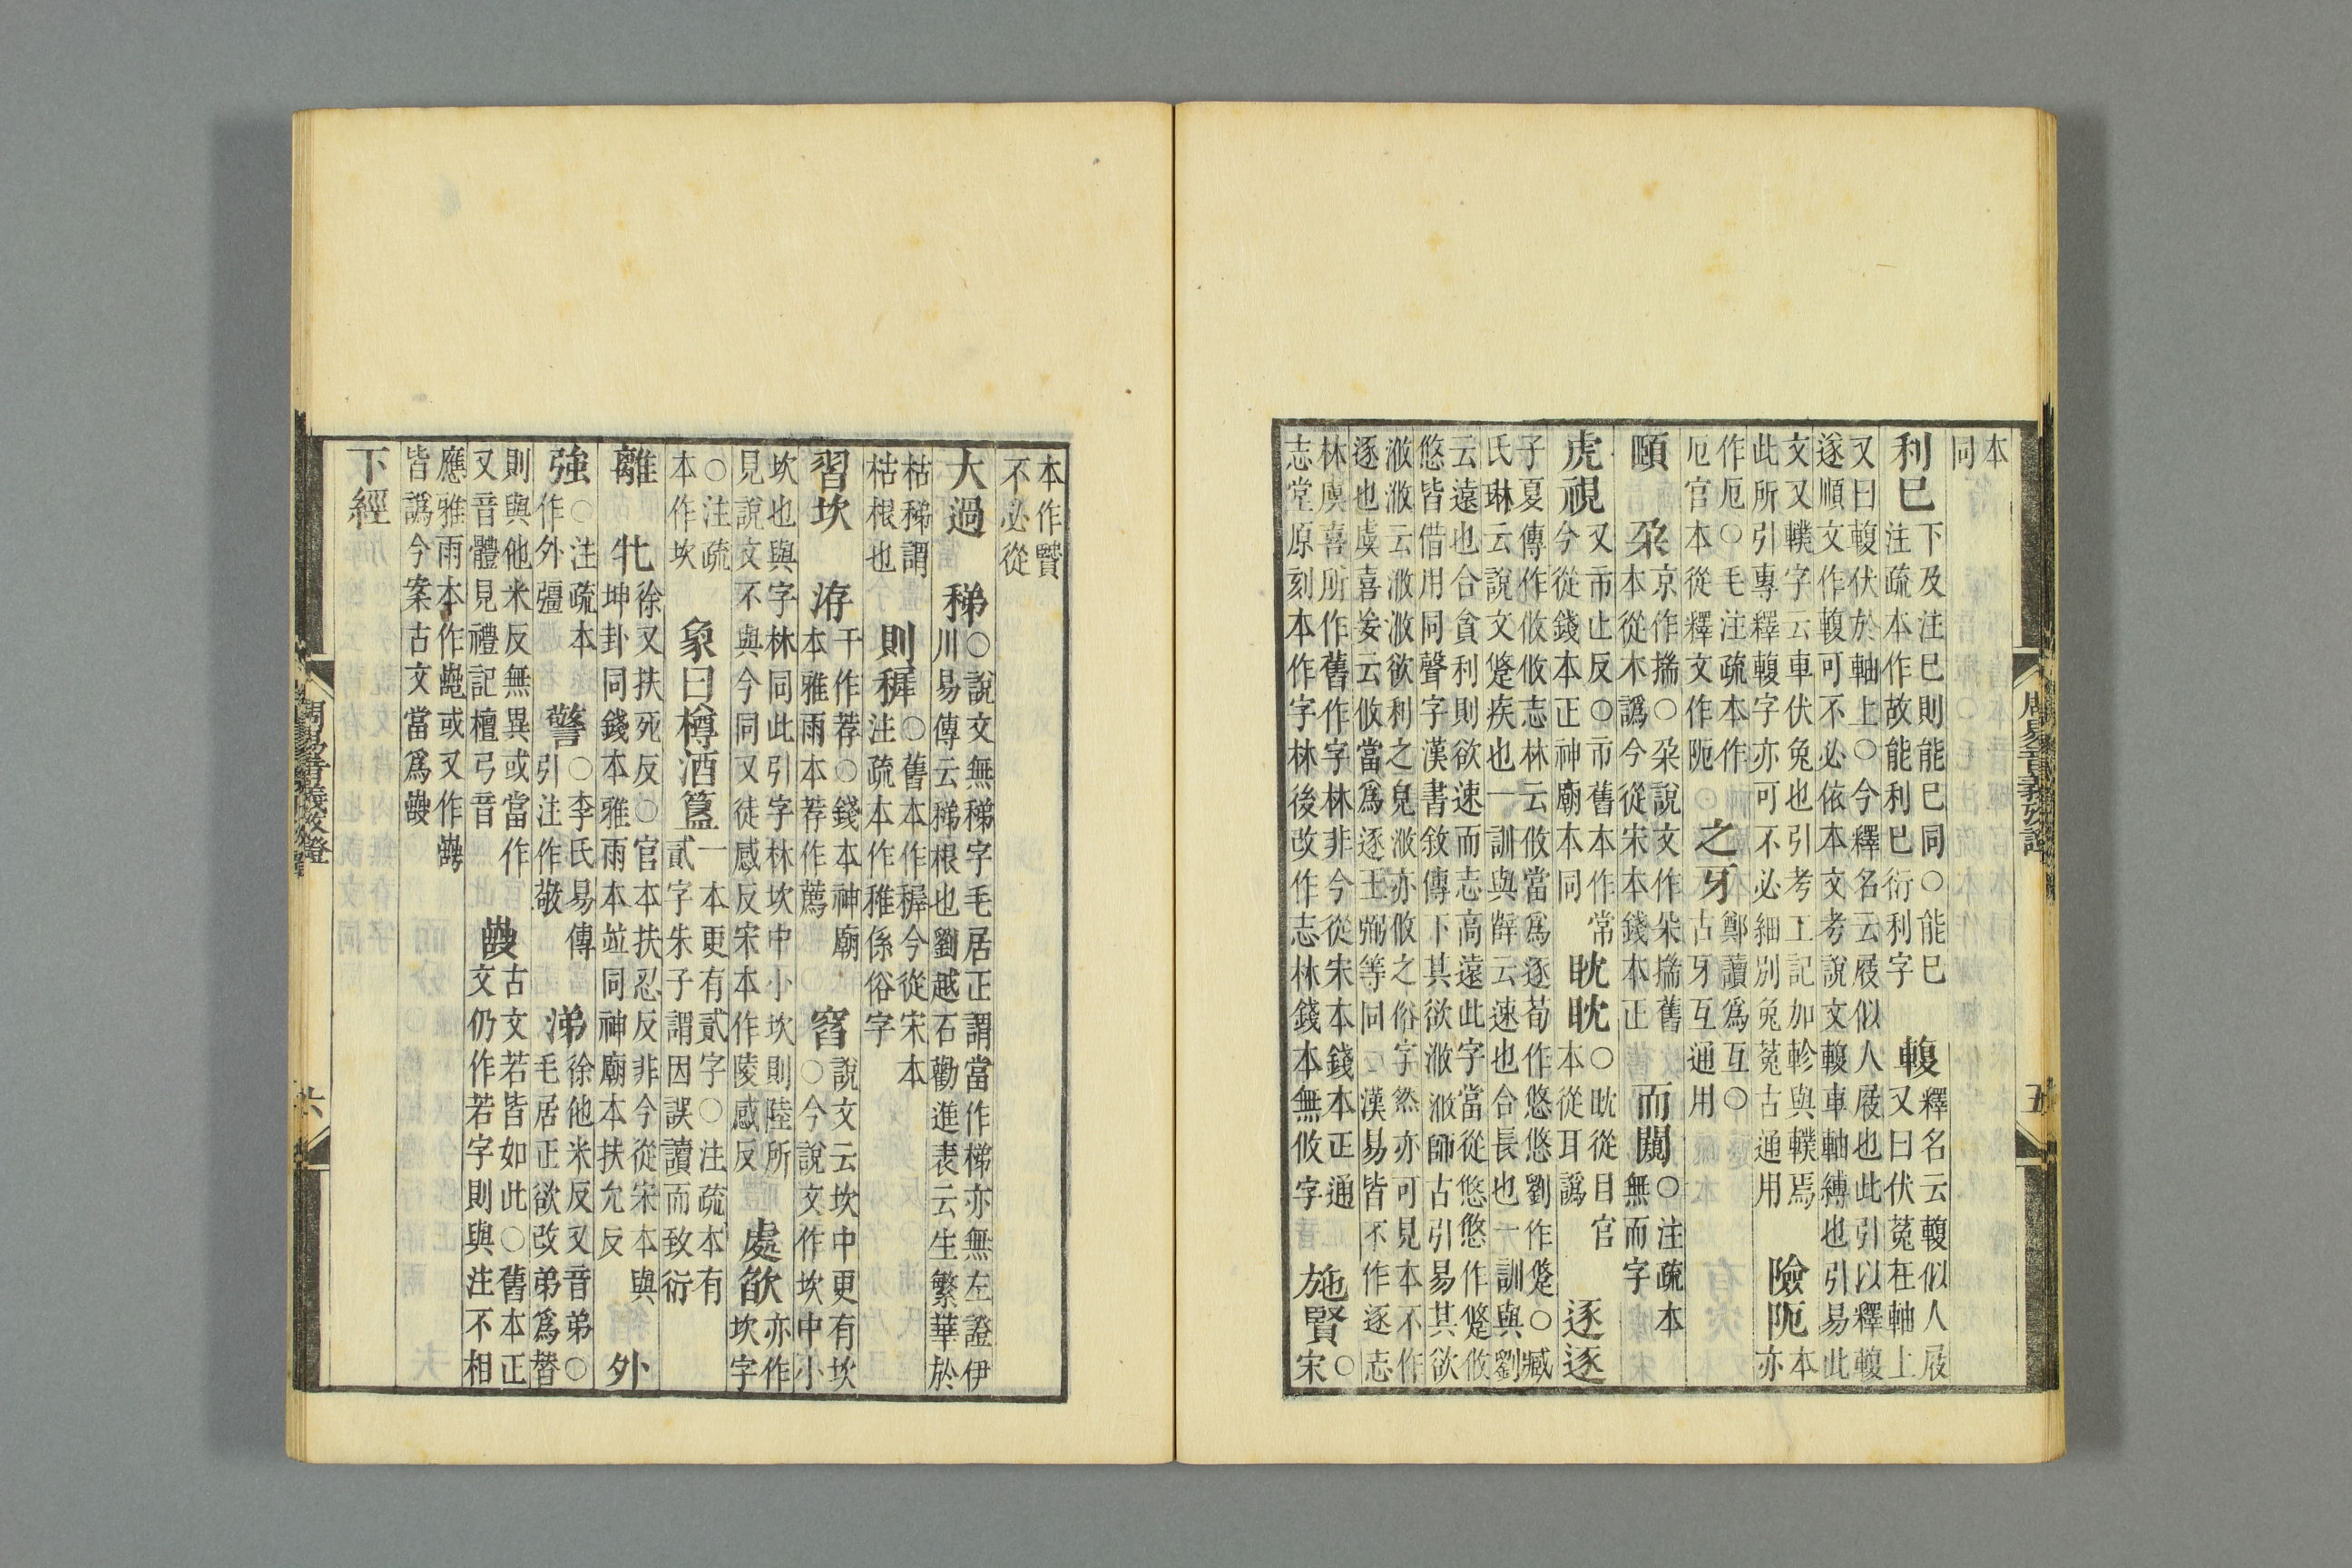 本
同
利已 下及注已則能已同○能已
注疏本作故能利已衍利字
輹 釋名云輹似人屐
又曰伏菟在軸上
又曰輹伏於軸上○今釋名云屐似人屐也此引以釋輹
遂順文作輹可不必依本文考說文輹車軸縛也引易此
文又轐字云車伏兔也引考工記加軫與轐焉
此所引專釋輹字亦可不必細別兔菟古通用
險阨 本
亦
作厄○毛注疏本作
厄官本從釋文作阨○
之牙 鄭讀爲互○
古牙互通用
頤
朶 京作揣○朶說文作朵揣舊
本從木譌今從宋本錢本正
而闚 ○注疏本
無而字
虎視 又市止反○市舊本作常
今從錢本正神廟本同
眈眈 ○眈從目官
本從耳譌
逐逐
子夏傳作攸攸志林云攸當爲逐荀作悠悠劉作䠱○臧
氏琳云說文䠱疾也一訓與薛云速也合長也一訓與劉
云遠也合貪利則欲速而志高遠此字當從悠悠作䠱攸
悠皆借用同聲字漢書敘傳下其欲浟浟師古引易其欲
浟浟云浟浟欲利之皃浟亦攸之俗字然亦可見本不作
逐也虞喜妄云攸當爲逐王弼等同二漢易皆不作逐志
林虞喜所作舊作字林非今從宋本錢本正通
志堂原刻本作字林後改作志林錢本無攸字
施賢 ○
宋
周易音義攷證
五
本作贒
不必從
大過
稊 ○說文無稊字毛居正謂當作梯亦無左證伊
川易傳云稊根也劉越石勸進表云生繁華於
枯稊謂
枯根也
則稺 ○舊本作穉今從宋本
注疏本作稚係俗字
習坎
洊 干作荐○錢本神廟
本雅雨本荐作薦
窞 說文云坎中更有坎
○今說文作坎中小
坎也與字林同此引字林坎中小坎則陸所
見說文不與今同又徒感反宋本作陵感反
處欿 亦作
坎字
○注疏
本作坎
象曰樽酒簋 一本更有貳字○注疏本有
貳字朱子謂因誤讀而致衍
離
牝 徐又扶死反○官本扶忍反非今從宋本與
坤卦同錢本雅雨本並同神廟本扶允反
外
強 ○注疏本
作外彊
警 ○李氏易傳
引注作敬
涕 徐他米反又音弟○
毛居正欲改弟爲替
則與他米反無異或當作
又音體見禮記檀弓音
古文若皆如此○舊本正
文仍作若字則與注不相
應雅雨本作
或又作
皆譌今案古文當爲
下經
周易音義攷證
六